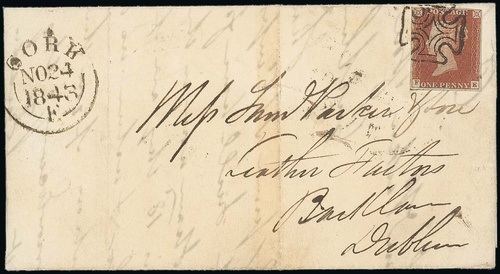 CORK
NO 24
1843
POSTAGE
ONE PENNY
Mess
Parker & Sons
Leather Factors
Back Lane
Dublin